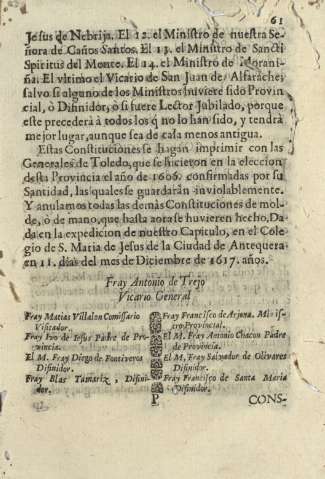 61
Jesus de Nebrija. El 12. el Ministro de nuestra Se-
ñora de Caños Santos. El 13. el Ministro de Sancti
Spiritus del Monte. El 14. el Ministro de
ña. El vltimo el Vicario de San Juan de Alfarache;
salvo si alguno de los Ministros huviere sido Provin-
cial, ò Difinidor, ò si fuere Lector Jubilado, porque
este precederà à todos los q̃ no lo han sido, y tendrà
mejor lugar, aunque sea de casa menos antigua.
Estas Constituciones se hagan imprimir con las
Generales de Toledo, que se hicieron en la eleccion
desta Provincia el año de 1606. confirmadas por su
Santidad, las quales se guardarán inviolablemente.
Y anulamos todas las demàs Constituciones de mol-
de, ò de mano, que hasta aora se huvieren hecho, Da-
da en la expedicion de nuestro Capitulo, en el Cole
gio de S. Maria de Jesus de la Ciudad de Antequera
en 11. dias del mes de Diciembre de 1617. años.
Fray Antonio de Trejo
Vicario General
Fray Matias Villalon Comissario
Visitador.
Fray Ivo de Jesus Padre de Pro-
vincia.
El M. Fray Diego de Fontiveros
Difinidor.
Fray Blas Tamariz, Difini-
dor.
Fray Francisco de Arjona. Minis-
tro Provincial.
El M. Fray Antonio Chacon Padre
de Provincia.
El M. Fray Salvador de Olivares
Difinidor.
Fray Francisco de Santa Maria
Difinidor.
P
CONS-